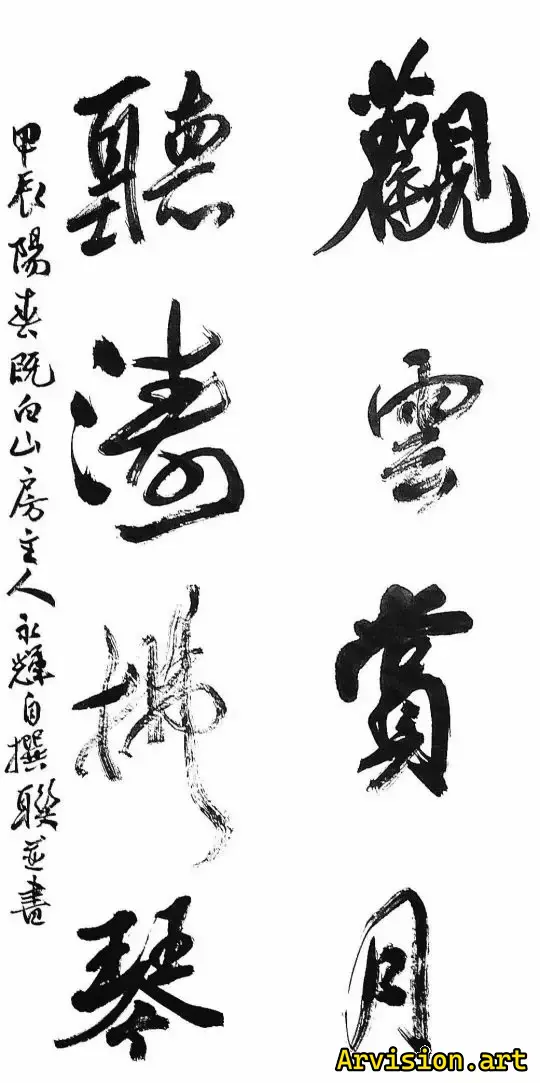 觀雲賞月
聽濤拂琴
甲辰陽春既白山房主人永輝自撰聯並書
Arvision.art